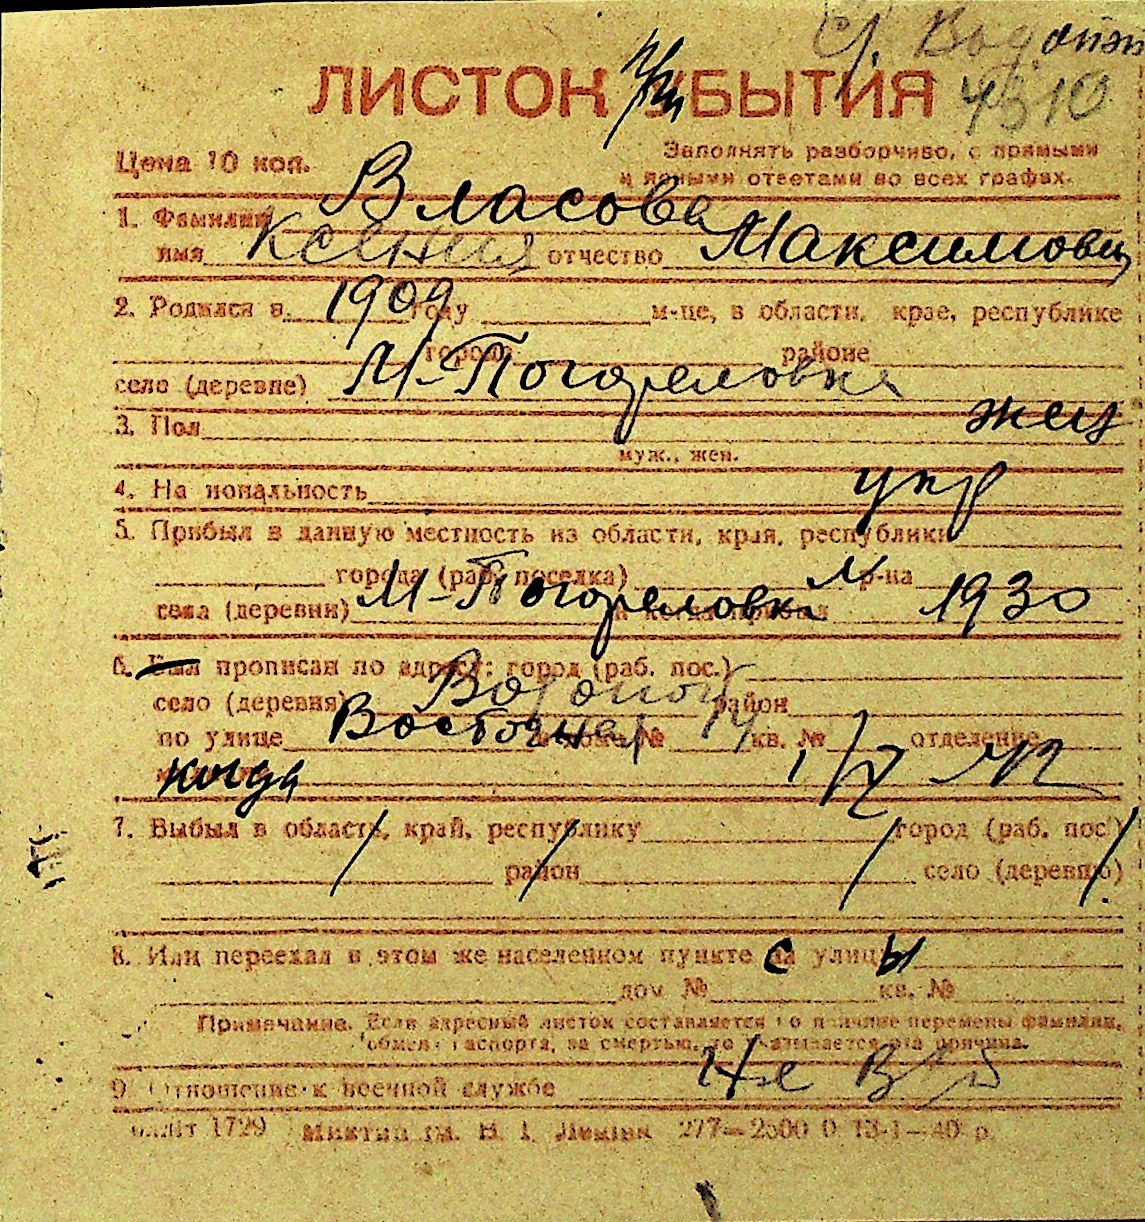 ЛИСТОК УБЫТИЯ
4310
Цена 10 коп.
Заполнять разборчиво, с прямыми
и ясными ответами во всех графах.
1. Фамилия Власова
имя Ксения отчество Максимовн
2. Родился в 1909 году м-це, в области, крае, республике
городе районе
село (деревне) М-Погореловка
3. Пол жен
муж., жен.
4. Национальность укр
5. Прибыл в данную местность из области, края, республики
города (раб. поселка) р-на
села (деревни) М-Погореловка и когда прибыл 1930
6. Был прописан по адресу: город (раб. пос.)
село (деревня) район
по улице Восточная дом № 14 кв. № отделение
когда
7. Выбыл в область, край, республику город (раб. пос.)
район село (деревню)
8. Или переехал в этом же населенном пункте с улицы
дом № кв. №
Примечание. Если адресный листок составляется по причине перемены фамилии,
обмена паспорта, за смертью, то указывается эта причина.
9. Отношение к военной службе Не
1729 им. В. І. Леніна 277—2500 0 13-1—40 р.